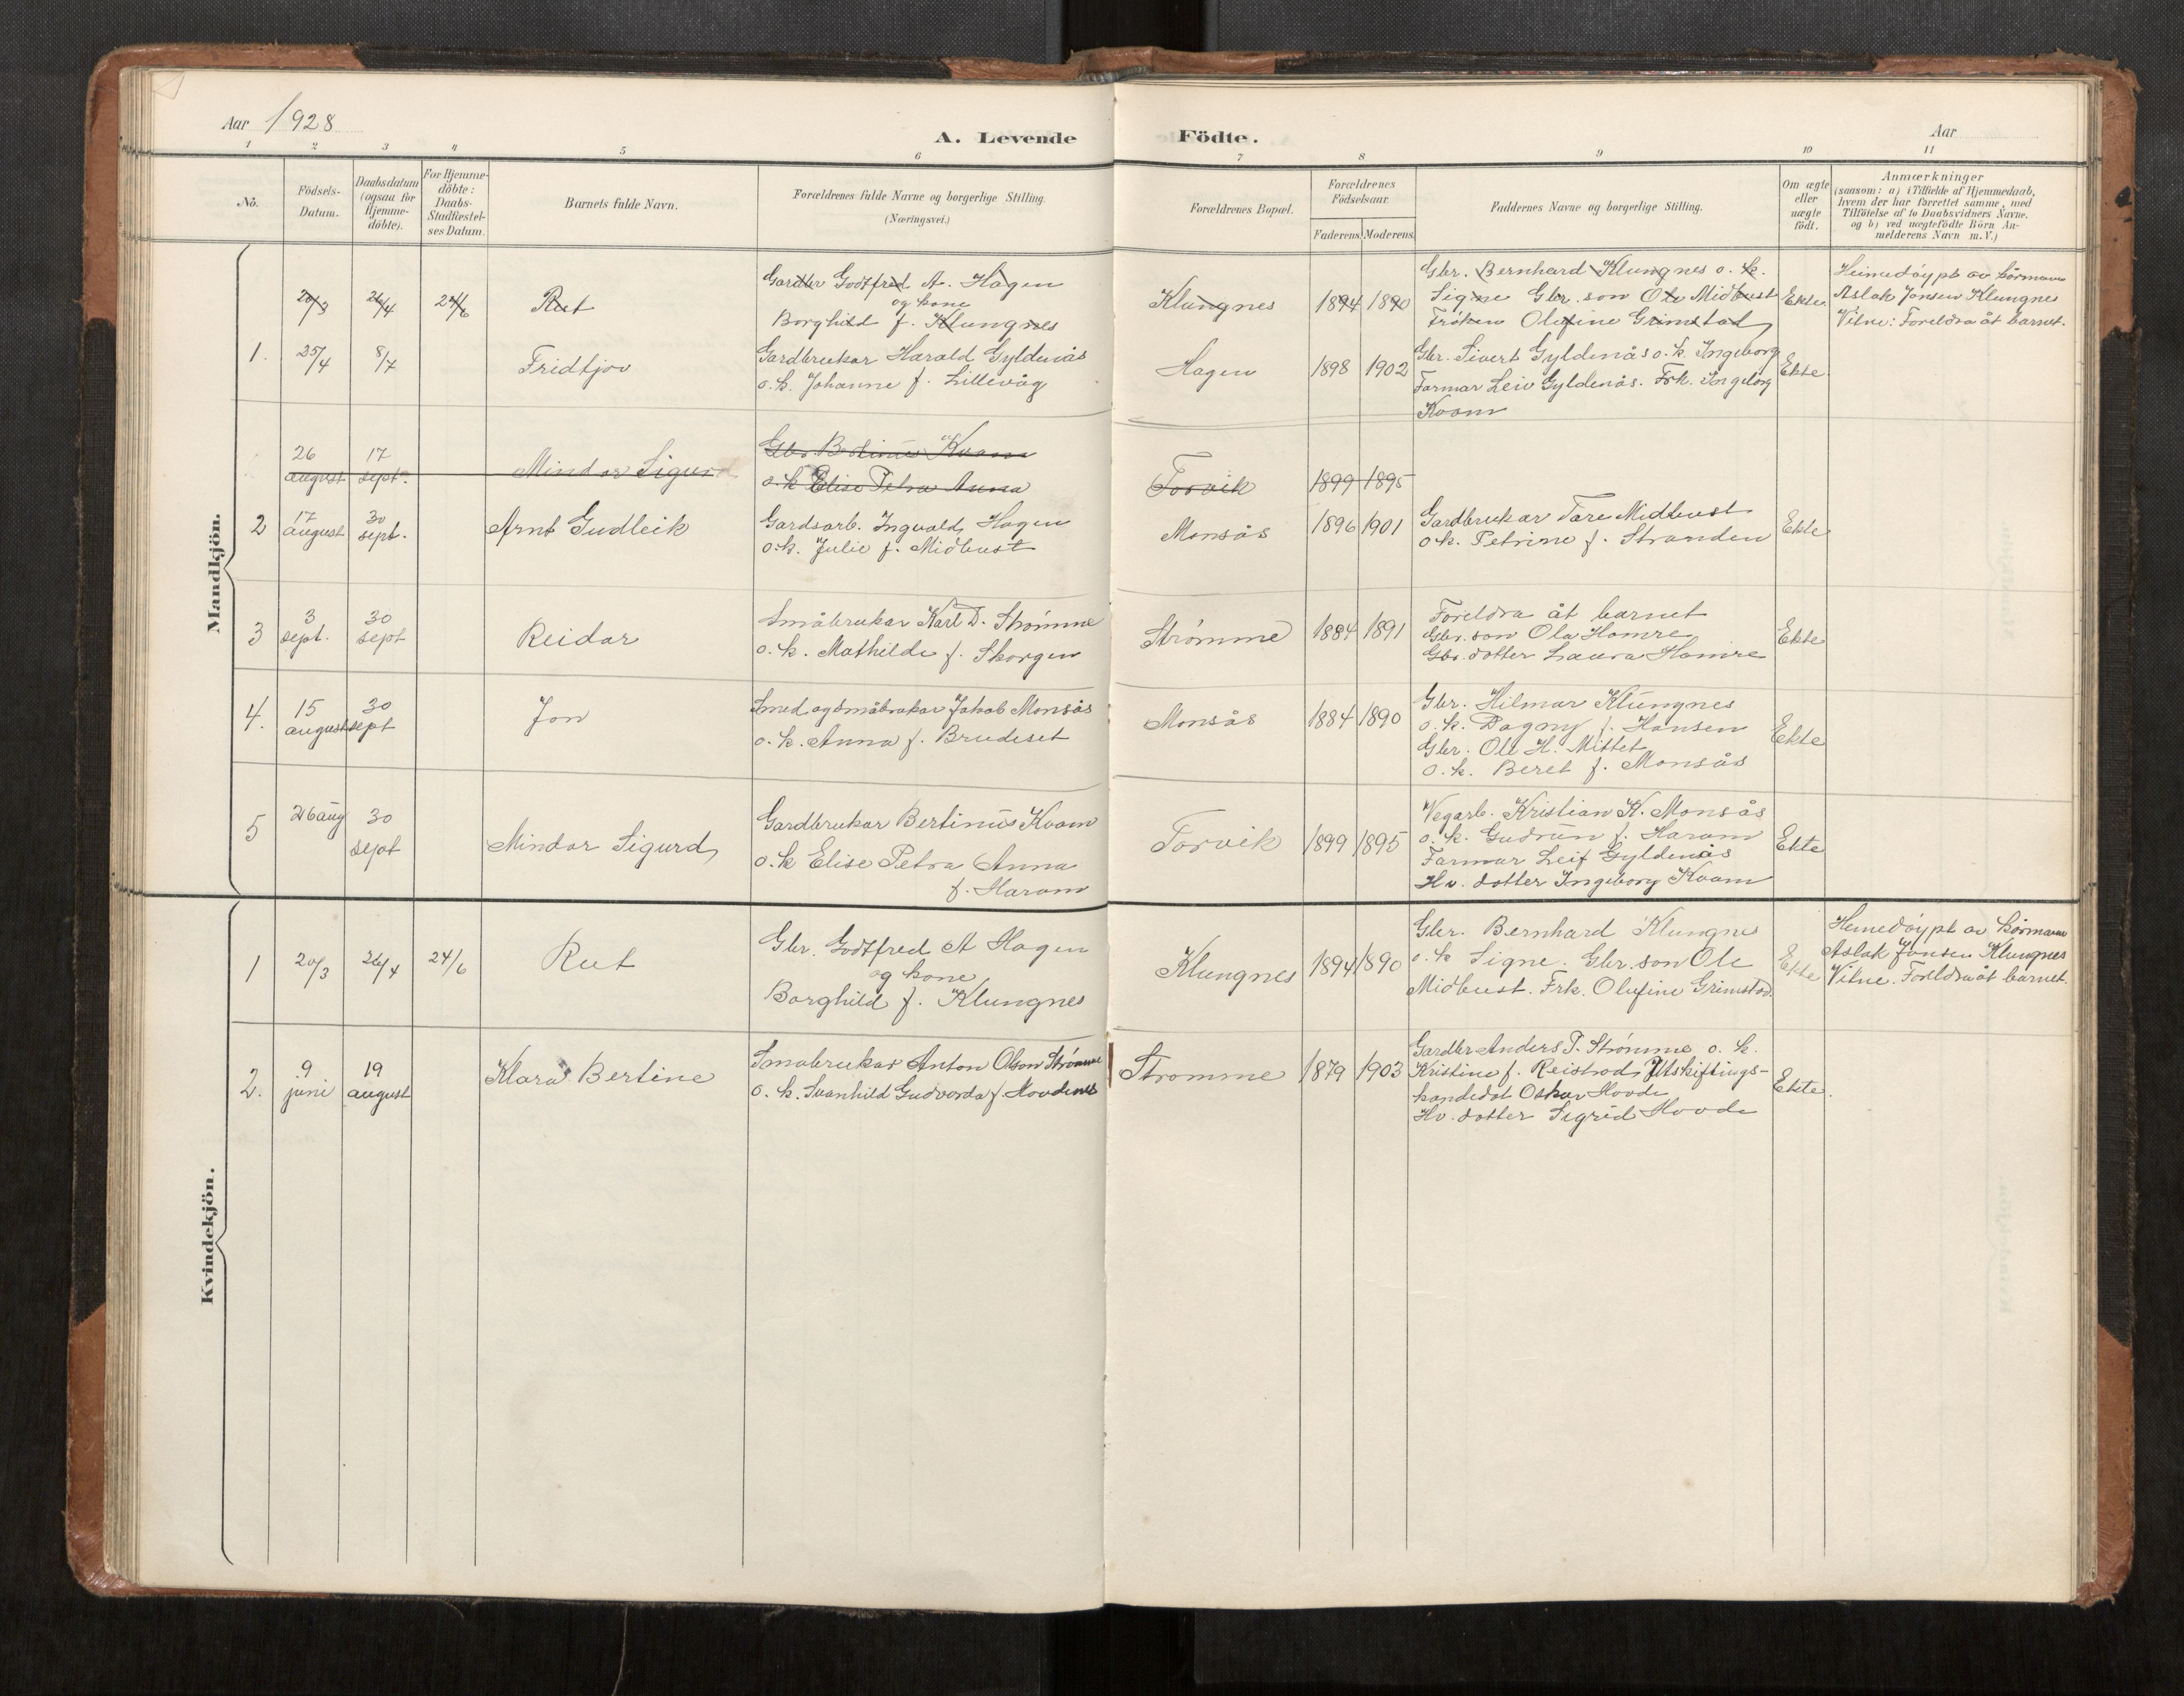 Aar 1928
A. Levende Födte.
Aar
1 2 3 4 5 6 7 8 9 10 11
Nò.
Födsels-
Datum.
Daabsdatum
(ogsaa for
Hjemme-
döbte).
For Hjemme-
döbte:
Daabs-
Stadfæstel-
ses Datum.
Barnets fulde Navn.
Forældrenes fulde Navne og borgerlige Stilling.
(Næringsvei.)
Forældrenes Bopæl.
Forældrenes
Födselsaar.
Faderens. Moderens.
Faddernes Navne og borgerlige Stilling.
Om ægte
eller
uægte
født.
Anmærkninger
(saasom: a) i Tilfælde af Hjemmedaab,
hvem der har forrettet samme, med
Tilföielse af to Daabsvidners Navne.
og b) ved uægtefödte Börn An-
melderens Navn m.V.)
Mandkjön.
20/3 26/4 24/6 Rut
Gardbr Godtfred A. Hagen
og kone
Borghild f. Klungnes
Klungnes 1894 1890
Gbr. Bernhard Klungnes o. k.
Signe Gbr. son Ole Midbust
Frøken Olefine Grimstad
Ekte.
Heimedøypt av kormann
Aslak Jonsen Klungnes
Vitne: Foreldra åt barnet.
1. 25/4 8/7 Fridtjov
Gardbrukar Harald Gyldenås
o. k. Johanne f. Lillevåg
Hagen 1898 1902
Gbr. Sivert Gyldenås o. k. Ingeborg
Farmar Leiv Gyldenås. Frk. Ingeborg
Kvam
Ekte
26 august 17 sept. Mindor Sigurd
Gbr. Bertinus Kvam
o. k Elise Petra Anna
Torvik 1899 1895
2 17 august 30 sept. Arnt Gudleik
Gardsarb. Ingvald Hagen
o. k. Julie f. Midbust
Monsås 1896 1901
Gardbrukar Tore Midbust
o. k. Petrine f. Stranden
Ekte
3 3 sept. 30 sept Reidar
Småbrukar Karl D. Strømme
o. k. Mathilde f. Skorgen
Strømme 1884 1891
Foreldra åt barnet
Gbr. son Ola Hamre
Gbr. dotter Laura Hamre
Ekte
4. 15 august 30 sept Jon
Smed og småbrukar Jakob Monsås
o. k. Anna f. Brudeset
Monsås 1884 1890
Gbr. Hilmar Klungnes
o. k. Dagny f. Hansen
Gbr. Ole H. Mittet
o. k. Beret f. Monsås
Ekte
5 26 aug 30 sept Mindor Sigurd
Gardbrukar Bertinus Kvam
o. k Elise Petra Anna
f. Haram
Torvik 1899 1895
Vegarb. Kristian K. Monsås
o. k. Gudrun f. Haram
Farmar Leif Gyldenås
Hv. dotter Ingeborg Kvam
Ekte
Kvindekjön.
1 20/3 26/4 24/6 Rut
Gbr. Godtfred A Hagen
og kone
Borghild f. Klungnes
Klungnes 1894 1890
Gbr. Bernhard Klungnes
o. k Signe. Gbr. son Ole
Midbust. Frk. Olufine Grimstad.
Ekte
Heimedøypt av kormann
Aslak Jonsen Klungnes
Vitne. Foreldra åt barnet.
2. 9 juni 19 august Klara Bertine
Småbrukar Anton Olson Strømme
o. k. Svanhild Gudvorda f. Hovdenes
Strømme 1879 1903
Gardbr Anders P. Strømme o. k.
Kristine f. Reistad, Utskiftings-
kandidat Oskar Hovde
Hv. dotter Sigrid Hovde
Ekte.